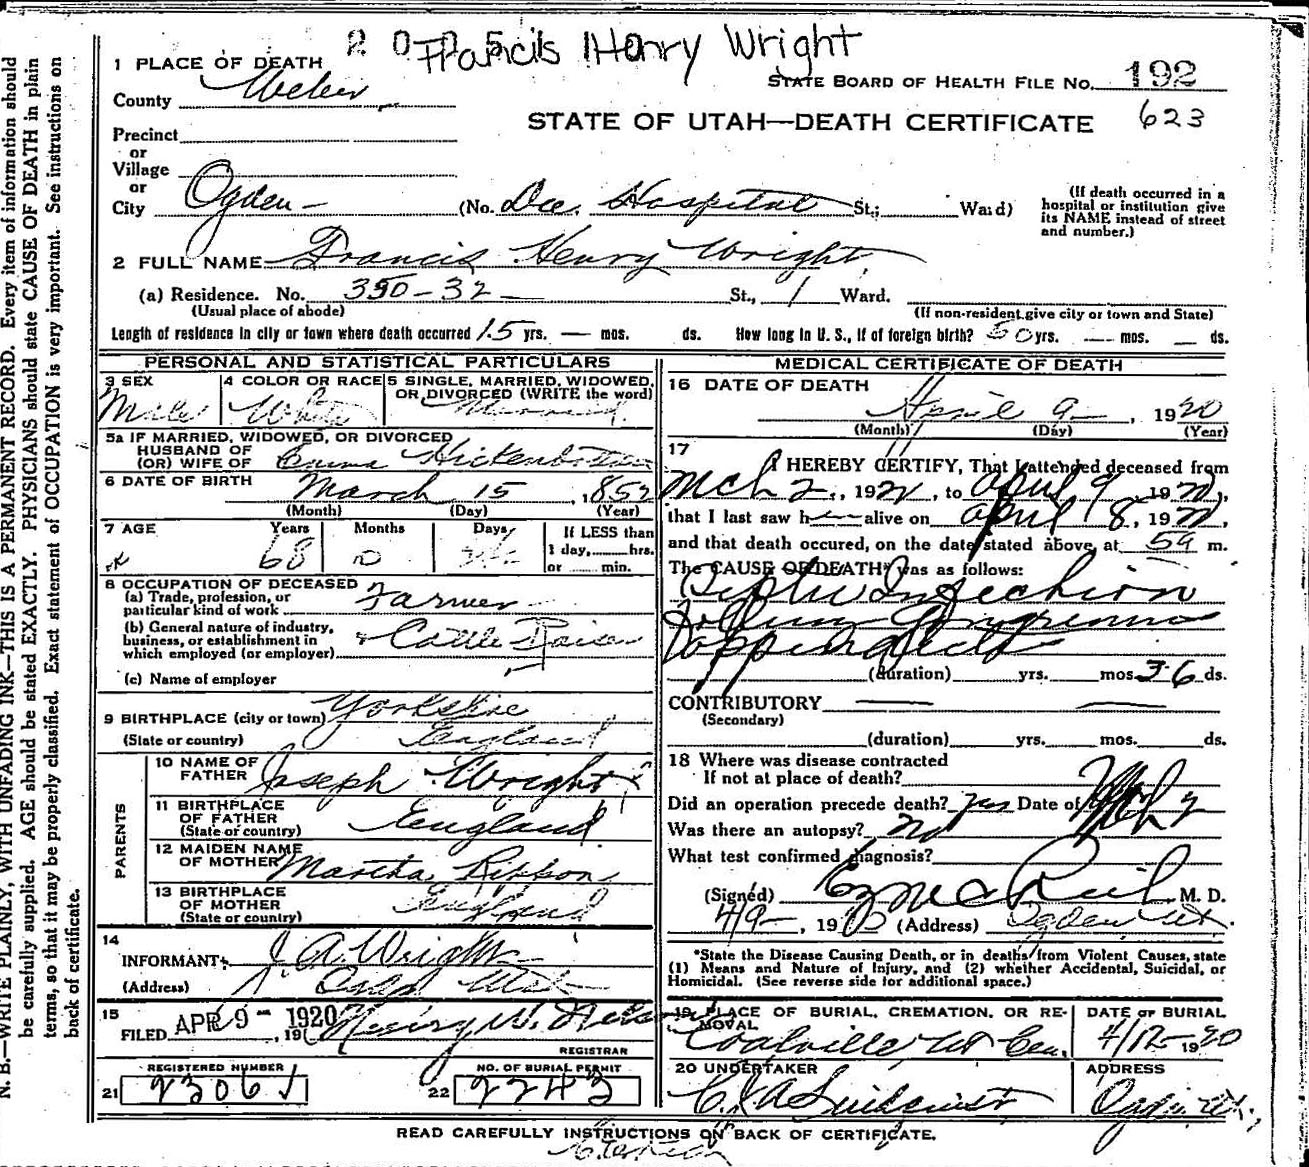 Francis Henry Wright
1 PLACE OF DEATH
STATE BOARD OF HEALTH FILE NO. 192
County Weber
STATE OF UTAH—DEATH CERTIFICATE 623
Precinct
or
Village
or
City Ogden (No. Dee Hospital St.; Ward)
(If death occurred in a hospital or institution give its NAME instead of street and number.)
2 FULL NAME Francis Henry Wright
(a) Residence. No. 350-32 St., 1 Ward.
(Usual place of abode) (If non-resident give city or town and State)
Length of residence in city or town where death occurred 15 yrs. — mos. ds. How long in U. S., if of foreign birth? 50 yrs. — mos. — ds.
PERSONAL AND STATISTICAL PARTICULARS
3 SEX Male
4 COLOR OR RACE White
5 SINGLE, MARRIED, WIDOWED, OR DIVORCED (WRITE the word) Married
5a IF MARRIED, WIDOWED, OR DIVORCED
HUSBAND OF
(OR) WIFE OF Emma
6 DATE OF BIRTH March 15, 1852
(Month) (Day) (Year)
7 AGE Years Months Days If LESS than
68 0 1 day, hrs.
or min.
8 OCCUPATION OF DECEASED
(a) Trade, profession, or
particular kind of work Farmer
(b) General nature of industry,
business, or establishment in
which employed (or employer) & Cattle Raiser
(c) Name of employer
9 BIRTHPLACE (city or town) Yorkshire
(State or country) England
PARENTS
10 NAME OF
FATHER Joseph Wright
11 BIRTHPLACE
OF FATHER
(State or country) England
12 MAIDEN NAME
OF MOTHER Martha Rippon
13 BIRTHPLACE
OF MOTHER
(State or country) England
14
INFORMANT J A Wright
(Address)
15
FILED APR 9 - 1920, 19 Henry W.
REGISTRAR
REGISTERED NUMBER NO. OF BURIAL PERMIT
21 22 2243
MEDICAL CERTIFICATE OF DEATH
16 DATE OF DEATH
April 9, 1920
(Month) (Day) (Year)
17
I HEREBY CERTIFY, That I attended deceased from
Mch 2, 1920, to April 9, 1920,
that I last saw h alive on April 8, 1920,
and that death occured, on the date stated above, at m.
The CAUSE OF DEATH* was as follows:
Septic Infection
Following Gangrenous
(duration) yrs. mos. 36 ds.
CONTRIBUTORY — —
(Secondary)
(duration) yrs. mos. ds.
18 Where was disease contracted
If not at place of death?
Did an operation precede death? yes Date of
Was there an autopsy? no
What test confirmed diagnosis?
(Signed) M. D.
4/9, 1920 (Address) Ogden Ut.
*State the Disease Causing Death, or in deaths from Violent Causes, state
(1) Means and Nature of Injury, and (2) whether Accidental, Suicidal, or
Homicidal. (See reverse side for additional space.)
19 PLACE OF BURIAL, CREMATION, OR RE-
MOVAL
Coalville Ut Cem.
DATE OF BURIAL
4/12 1920
20 UNDERTAKER
ADDRESS
Ogden Ut.
READ CAREFULLY INSTRUCTIONS ON BACK OF CERTIFICATE.
N. B.—WRITE PLAINLY, WITH UNFADING INK—THIS IS A PERMANENT RECORD. Every item of information should
be carefully supplied. AGE should be stated EXACTLY. PHYSICIANS should state CAUSE OF DEATH in plain
terms, so that it may be properly classified. Exact statement of OCCUPATION is very important. See instructions on
back of certificate.